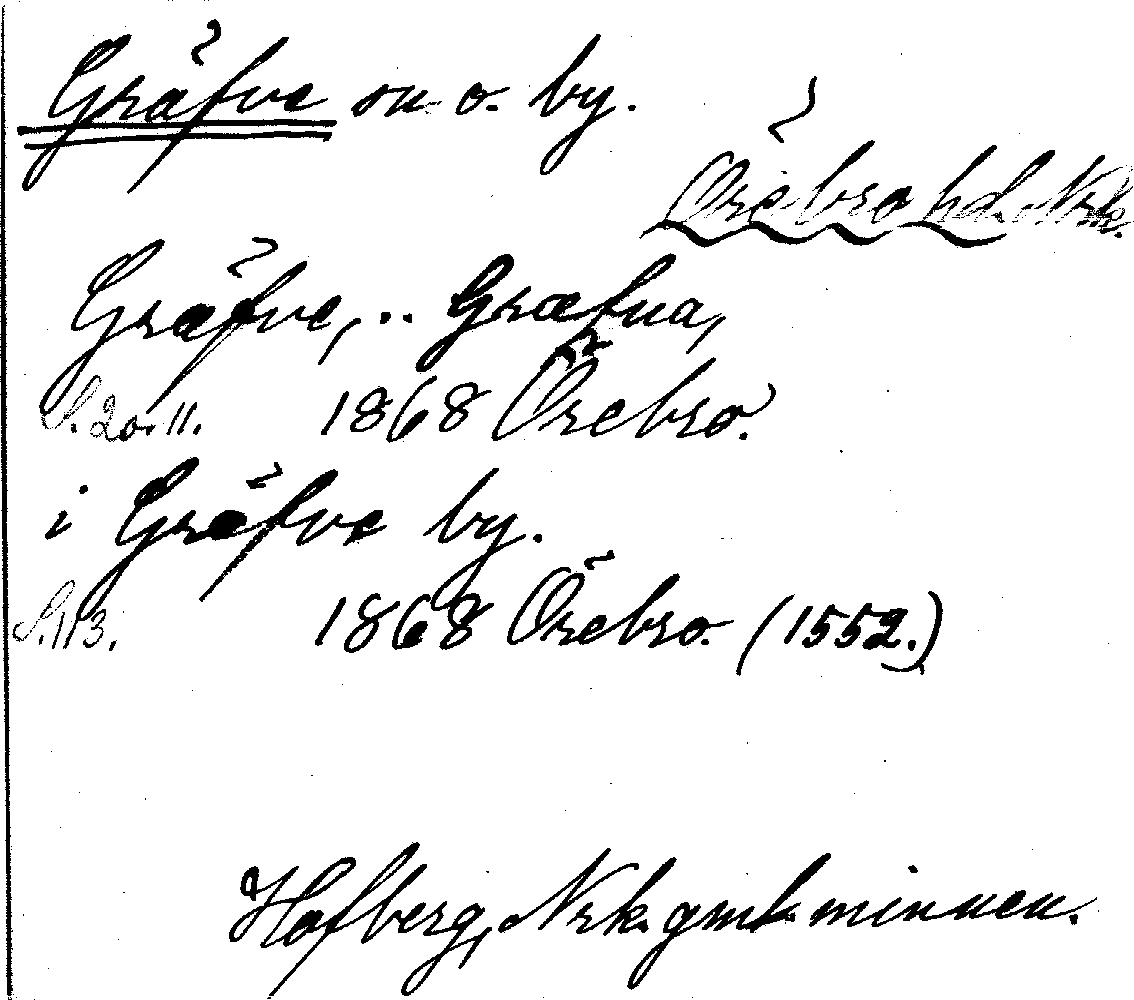 Gräfve sn o. by.
Örebro hd. Nrk.
Gräfve, .. Græfua,
S. 20. 11. 1868 Örebro.
i Gräfve by.
S. 113. 1868 Örebro. (1552.)
Hofberg, Nrk. gml. minnen.